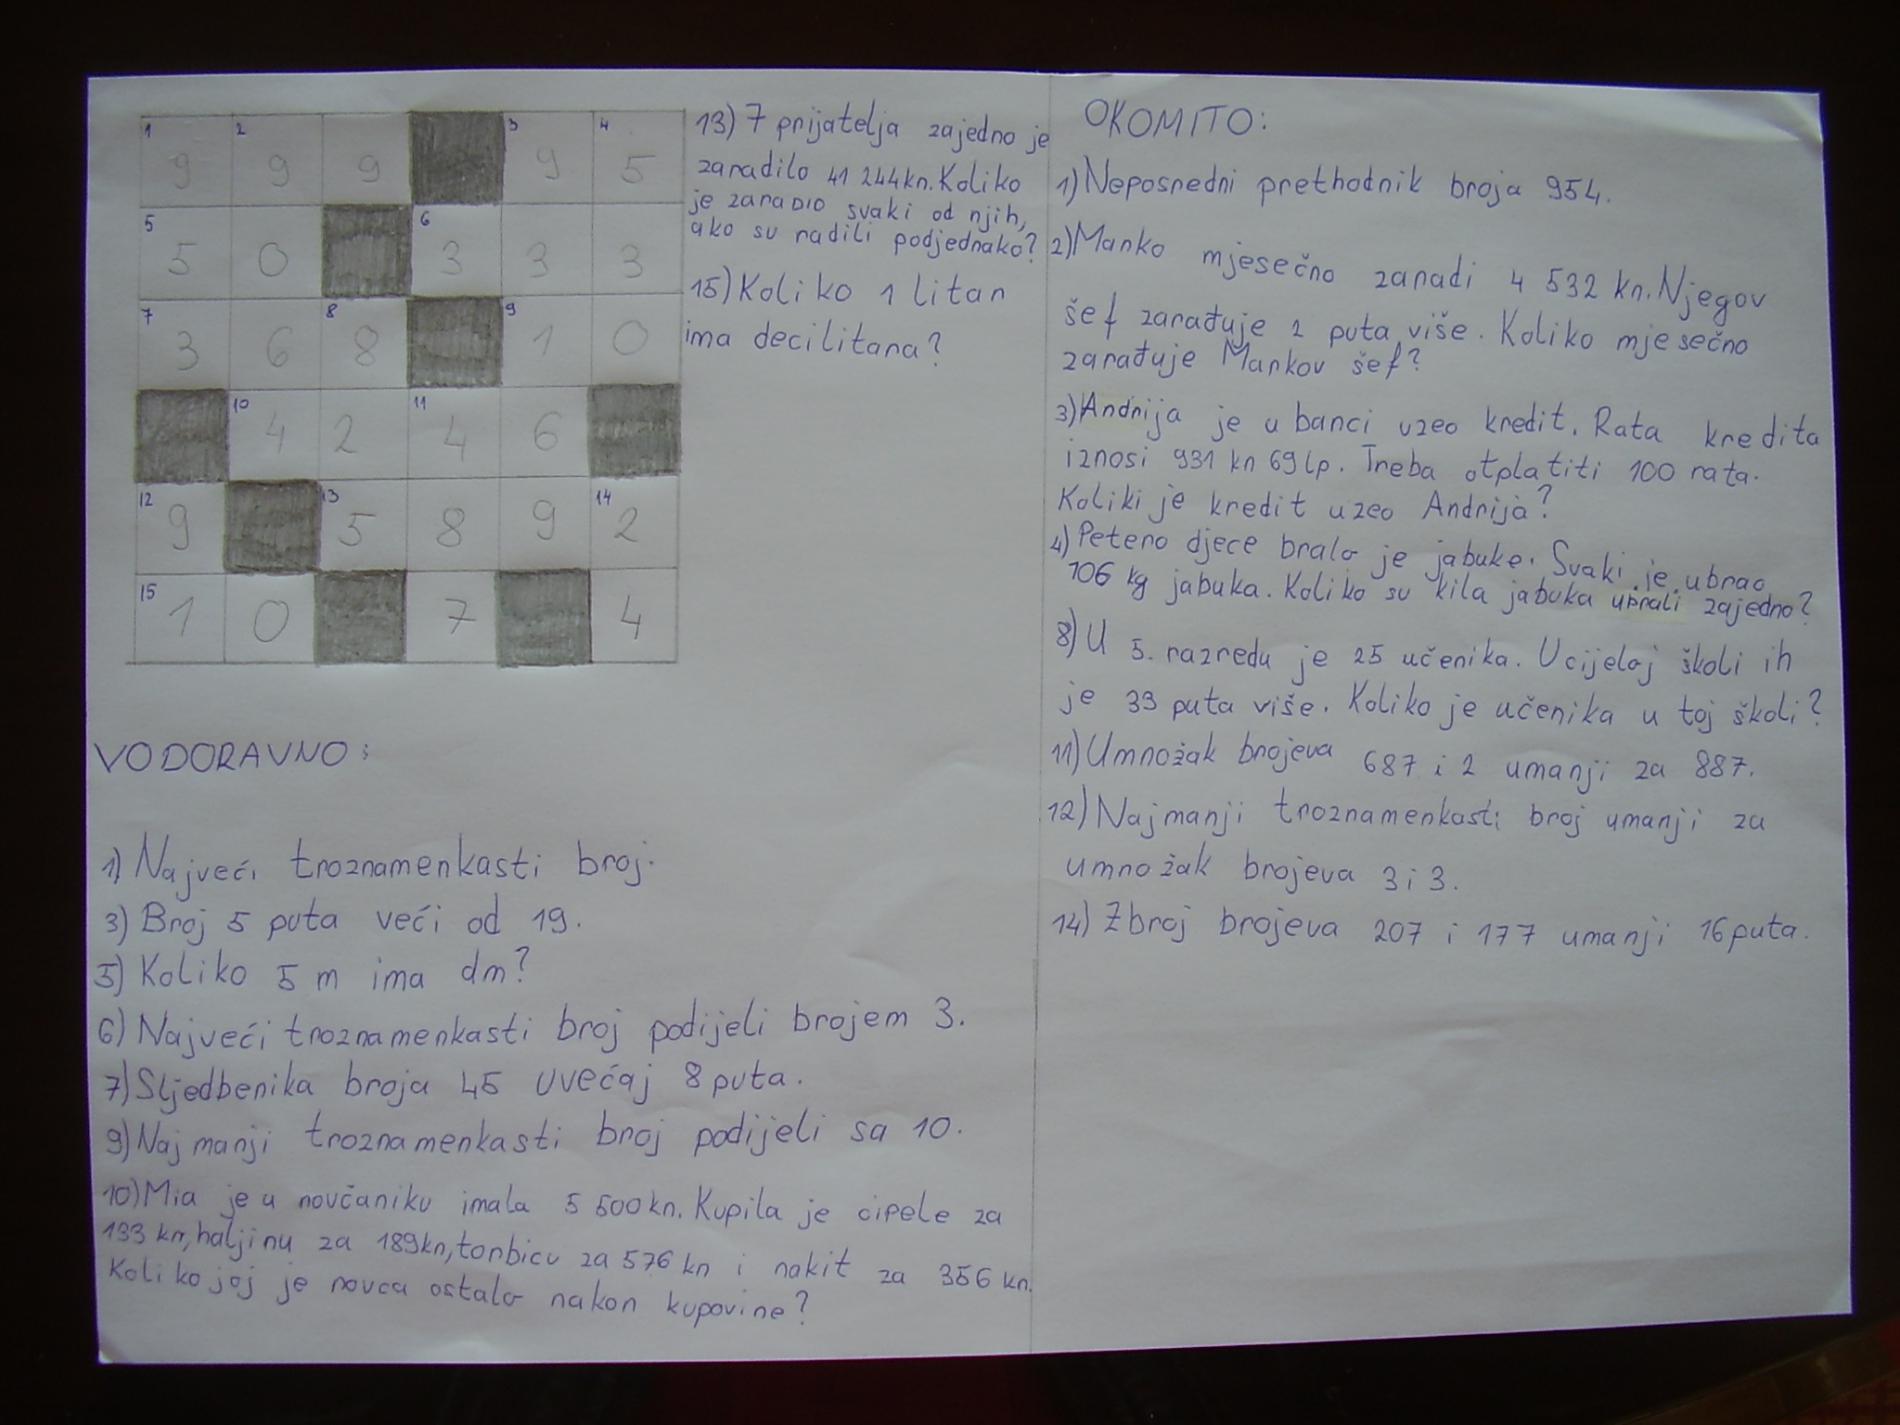 1 9 2 9 9 3 9 4 5
5 5 0 6 3 3 3
7 3 6 8 8 9 1 0
10 4 2 11 4 6
12 9 13 5 8 9 14 2
15 1 0 7 4
13) 7 prijatelja zajedno je
zaradilo 41 244kn. Koliko
je zaraDIO svaki od njih,
ako su radili podjednako?
15) Koliko 1 litar
ima decilitara?
VODORAVNO:
1) Najveći troznamenkasti broj.
3) Broj 5 puta veći od 19.
5) Koliko 5 m ima dm?
6) Najveći troznamenkasti broj podijeli brojem 3.
7) Sljedbenika broja 45 uvećaj 8 puta.
9) Najmanji troznamenkasti broj podijeli sa 10.
10) Mia je u novčaniku imala 5 500 kn. Kupila je cipele za
133 kn, haljinu za 189kn, torbicu za 576 kn i nakit za 356 kn.
Koliko joj je novca ostalo nakon kupovine?
OKOMITO:
1) Neposredni prethodnik broja 954.
2) Marko mjesečno zaradi 4 532 kn. Njegov
šef zarađuje 2 puta više. Koliko mjesečno
zarađuje Markov šef?
3) Andrija je u banci uzeo kredit. Rata kredita
iznosi 931 kn 69 lp. Treba otplatiti 100 rata.
Koliki je kredit uzeo Andrija?
4) Petero djece bralo je jabuke. Svaki je ubrao
106 kg jabuka. Koliko su kila jabuka ubrali zajedno?
8) U 5. razredu je 25 učenika. U cijeloj školi ih
je 33 puta više. Koliko je učenika u toj školi?
11) Umnožak brojeva 687 i 2 umanji za 887.
12) Najmanji troznamenkasti broj umanji za
umnožak brojeva 3 i 3.
14) Zbroj brojeva 207 i 177 umanji 16 puta.